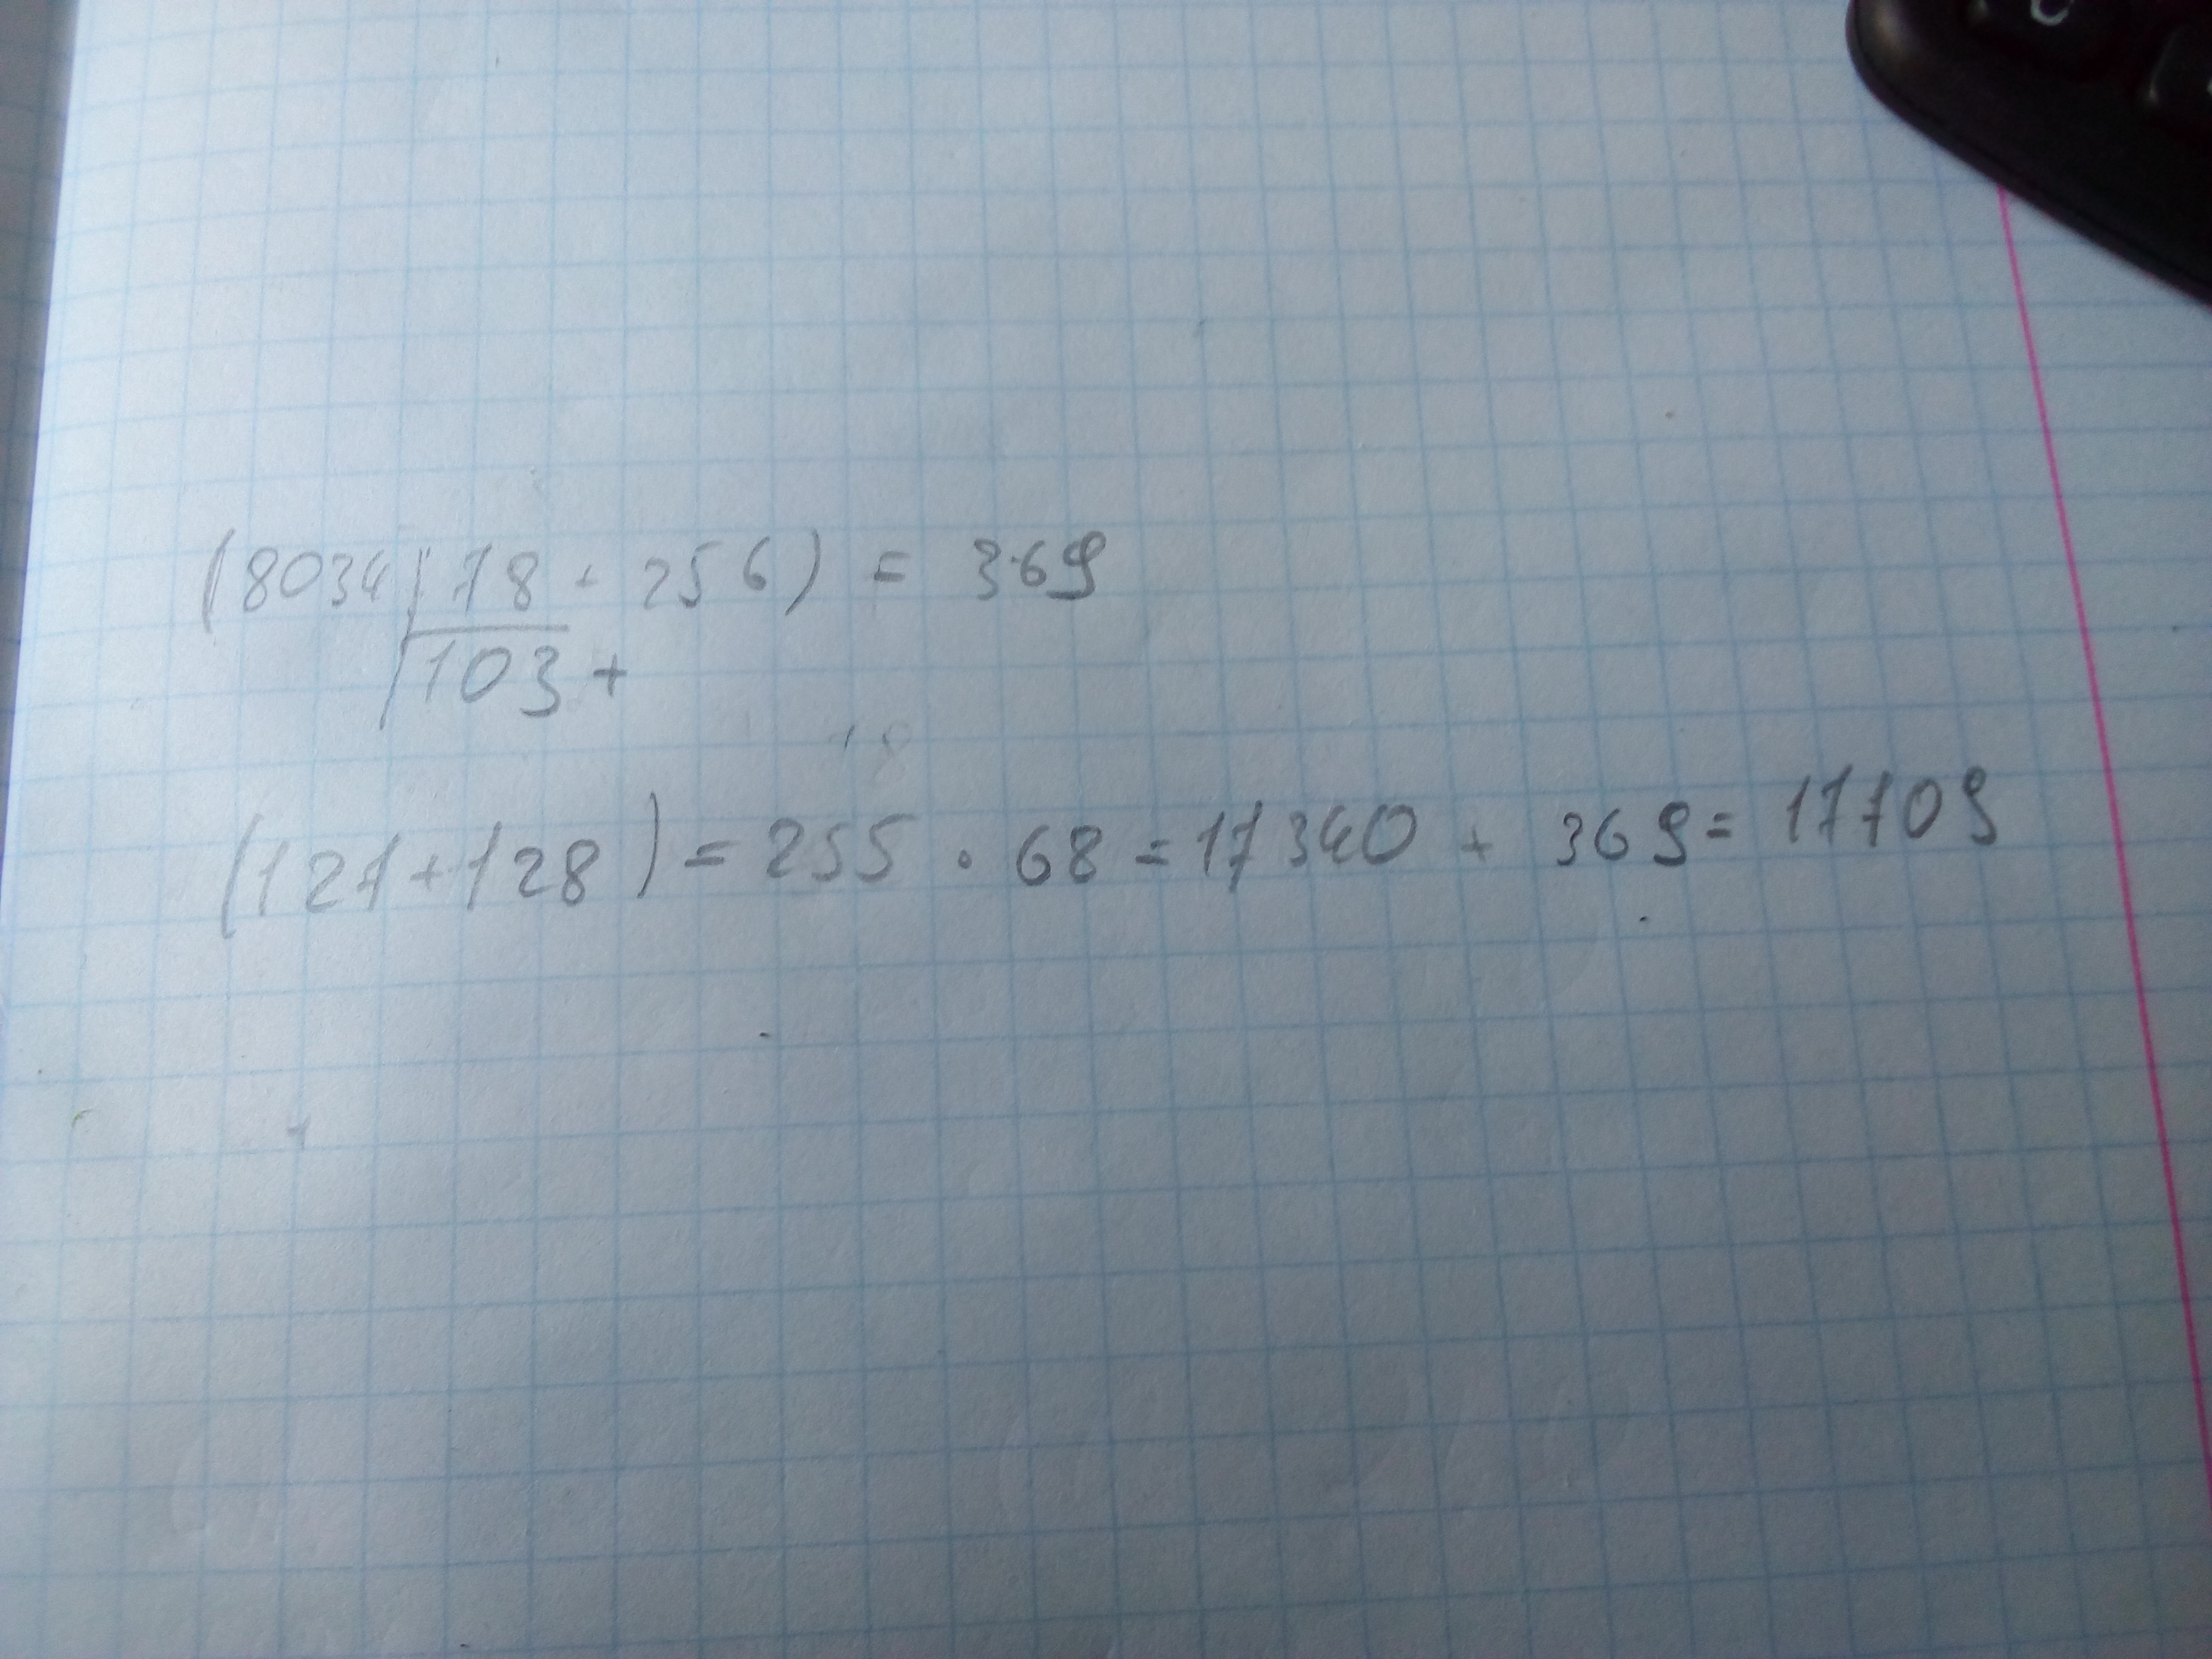 (8034 | 78 + 256) = 369
103 +
(127 + 128) = 255 · 68 = 17340 + 369 = 17709